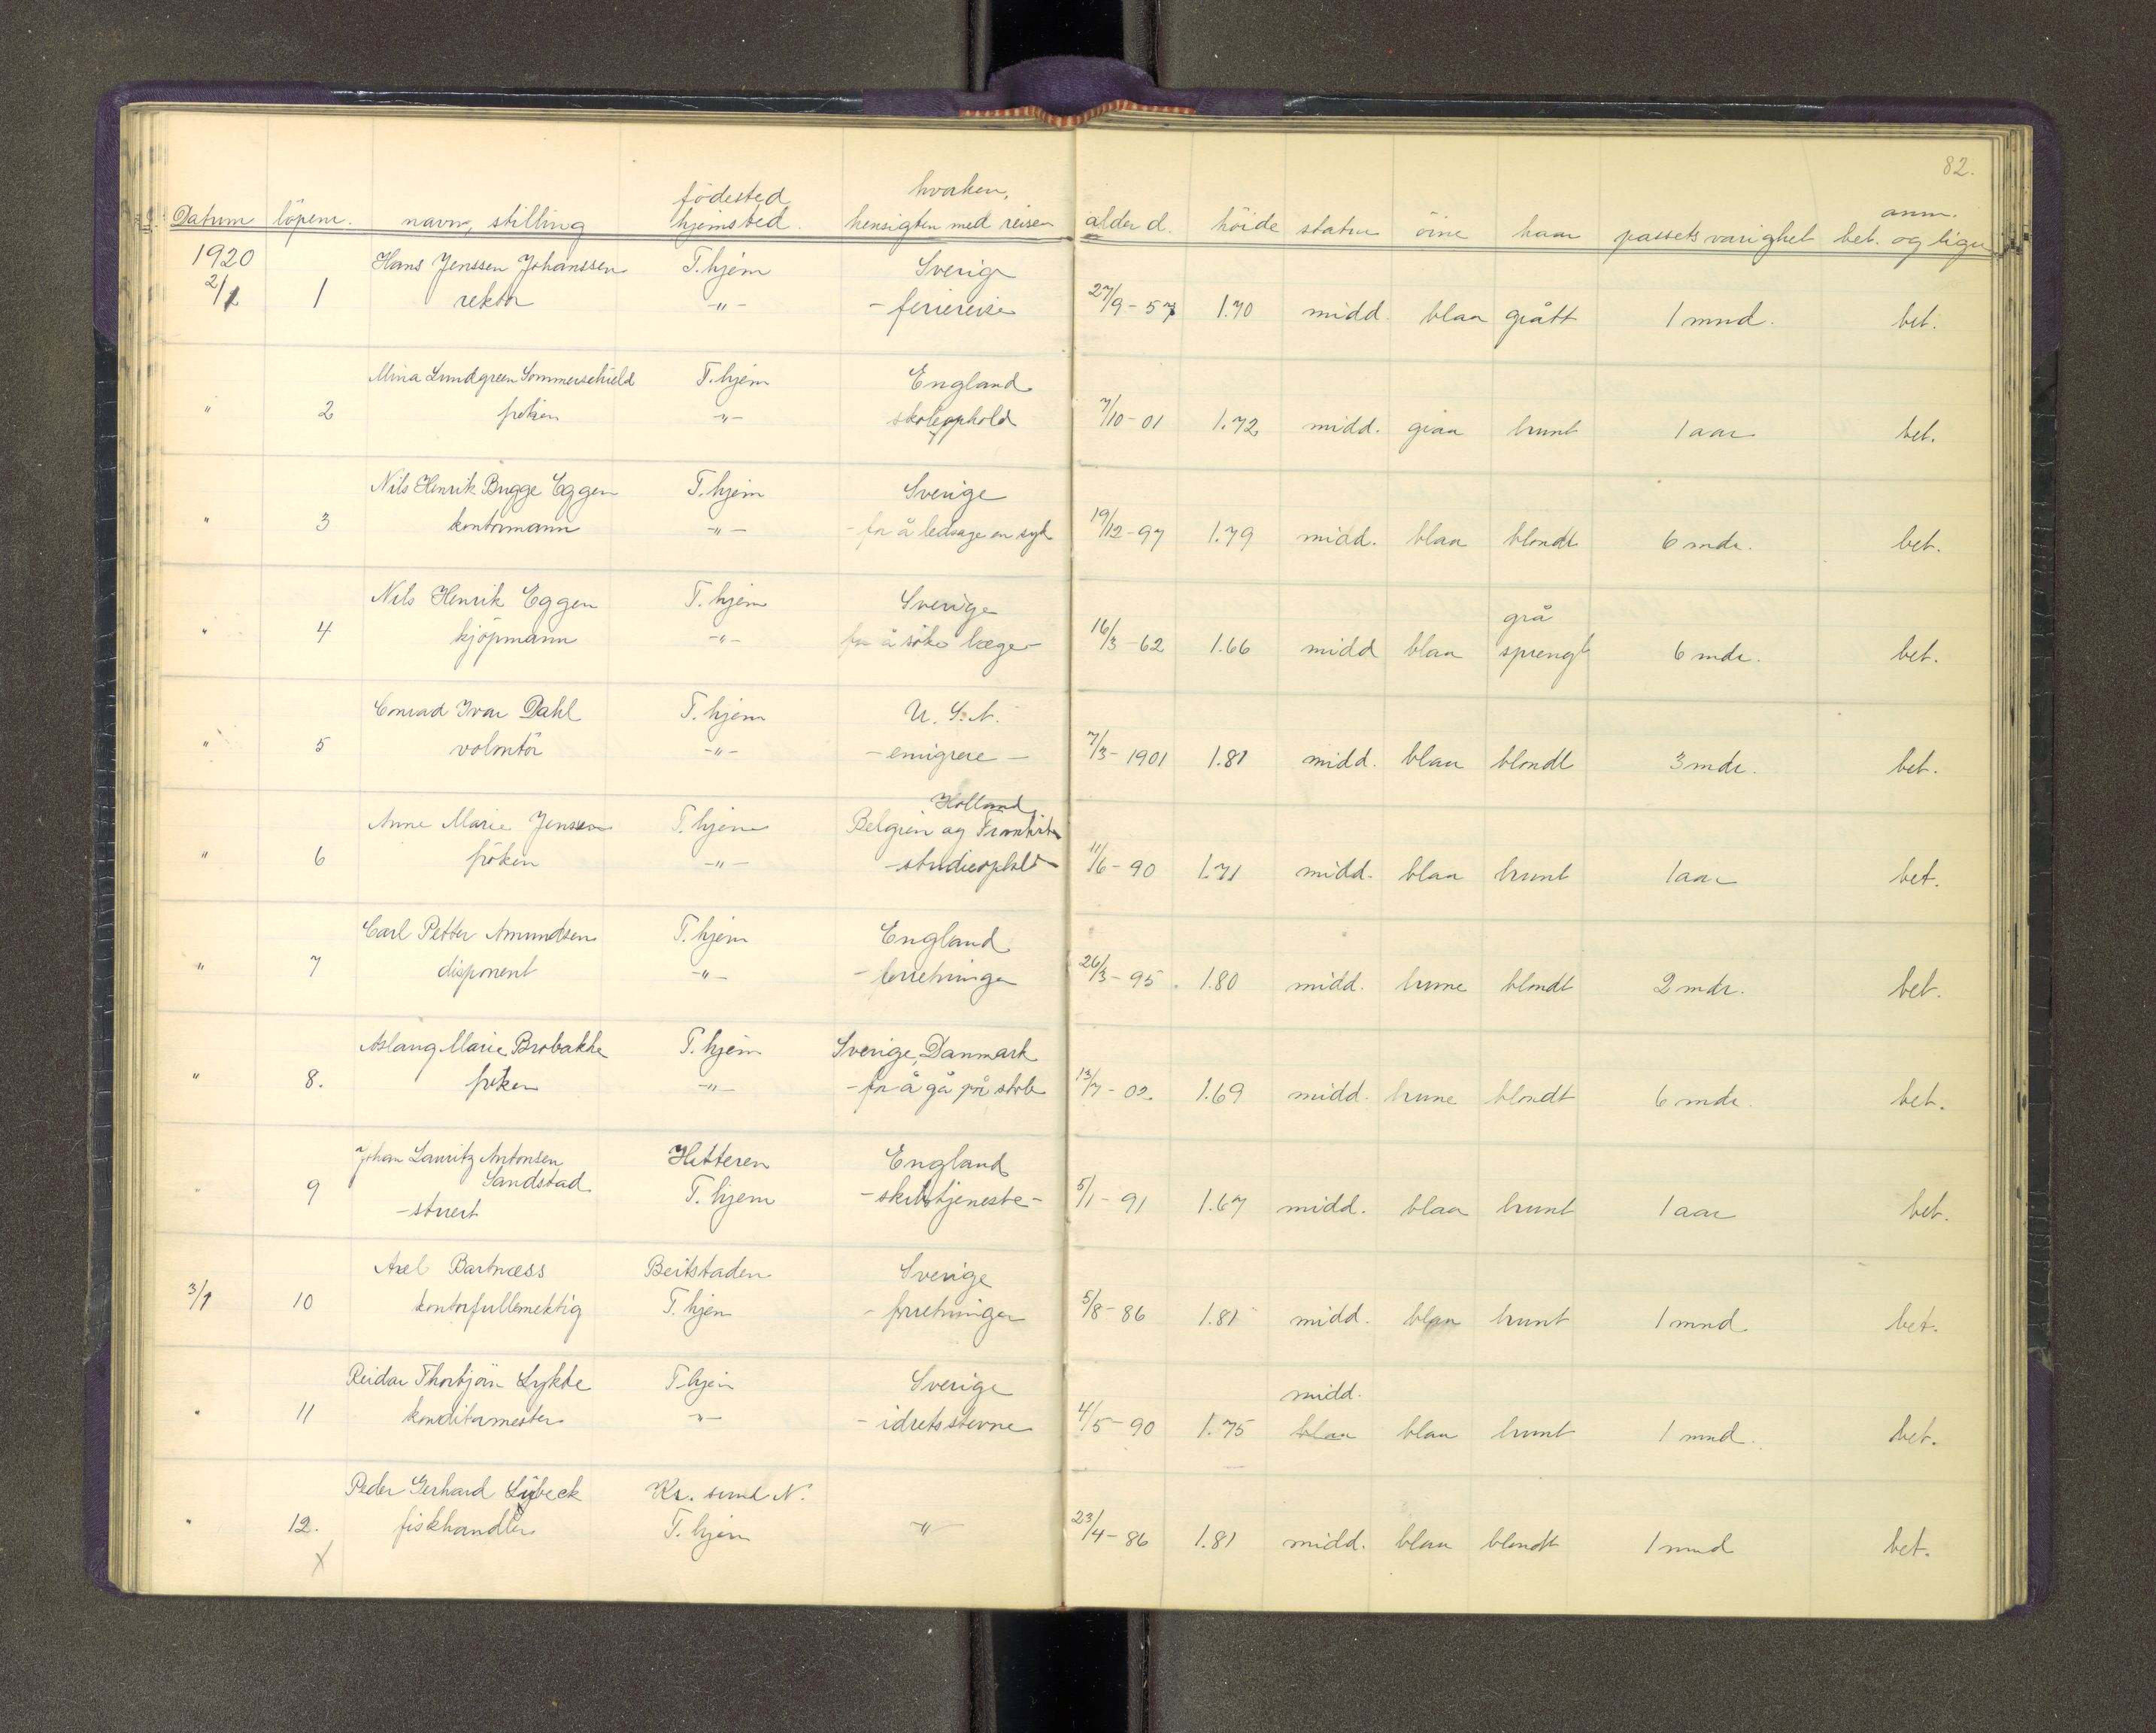 82.
Datum löpenr. navn, stilling födested hjemsted. hvorhen, hensigten med reisen alder d. höide statur öine haar passets varighet bet. anm. og lign
1920
2/1 1 Hans Jenssen Johanssen T.hjem Sverige
rektor -"- - feriereise 27/9-57 1.70 midd. blaa grått 1 mnd. bet.
Mina Lundgreen Sommerschield T.hjem England
" 2 fröken -"- skoleopphold 7/10-01 1.72 midd. graa brunt 1 aar bet.
Nils Henrik Bugge Eggen T.hjem Sverige
" 3 kontormann -"- - for å ledsage en syk 19/12-97 1.79 midd. blaa blondt 6 mdr. bet.
Nils Henrik Eggen T.hjem Sverige grå
" 4 kjöpmann -"- for å söke læge - 16/3-62 1.66 midd blaa sprengt 6 mdr. bet.
Conrad Ivar Dahl T.hjem U.S.A.
" 5 volontör -"- - emigrere - 7/3-1901 1.81 midd. blaa blondt 3 mdr. bet.
Holland
Anne Marie Jenssen T.hjem Belgien og Frankrike
" 6 fröken -"- - studieophold 11/6-90 1.71 midd. blaa brunt 1 aar bet.
Carl Petter Amundsen T.hjem England
" 7 disponent -"- - forretninger 26/3-95. 1.80 midd. brune blondt 2 mdr. bet.
Aslaug Marie Brobakke T.hjem Sverige, Danmark
" 8. fröken -"- - for å gå på skole 13/7-02. 1.69 midd. brune blondt 6 mdr. bet.
Johan Lauritz Antonsen Hitteren England
" 9 Sandstad T.hjem - skibstjeneste - 5/1-91 1.67 midd. blaa brunt 1 aar bet.
- stuert
Axel Bartnæss Beitstaden Sverige
3/1 10 kontorfullmektig T.hjem - forretninger 5/8-86 1.81 midd. blaa brunt 1 mnd bet.
Reidar Thorbjörn Lykke T.hjem Sverige midd.
" 11 konditormester -"- - idretsstevne 4/5-90 1.75 blaa blaa brunt 1 mnd. bet.
Peder Gerhard Lybeck Kr.sund N.
" 12. fiskhandler T.hjem -"- 23/4-86 1.81 midd. blaa blondt 1 mnd bet.
X